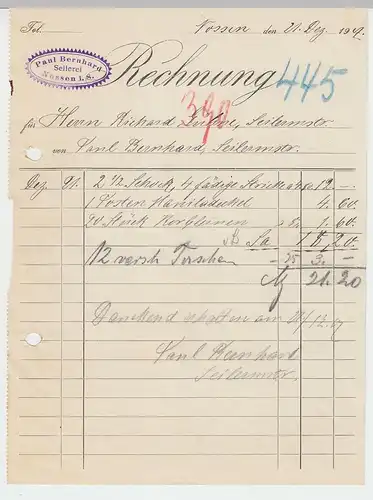 Tel. Nossen den 21. Dez. 1907.
Paul Bernhard
Seilerei
Nossen i.S.
Rechnung 445
390
für Herrn Richard Seilermstr.
von Paul Bernhard, Seilermstr.
Dez. 21. 2 1/2 Schock, 4 fädige Stricke 12 —
1 Posten 4. 60.
20 Stück Korbleinen 1. 60.
Sa 18. 20.
12 versch. — 25 3. —
M 21. 20
Dankend erhalten am 21/12. 07
Paul Bernhard
Seilermstr.